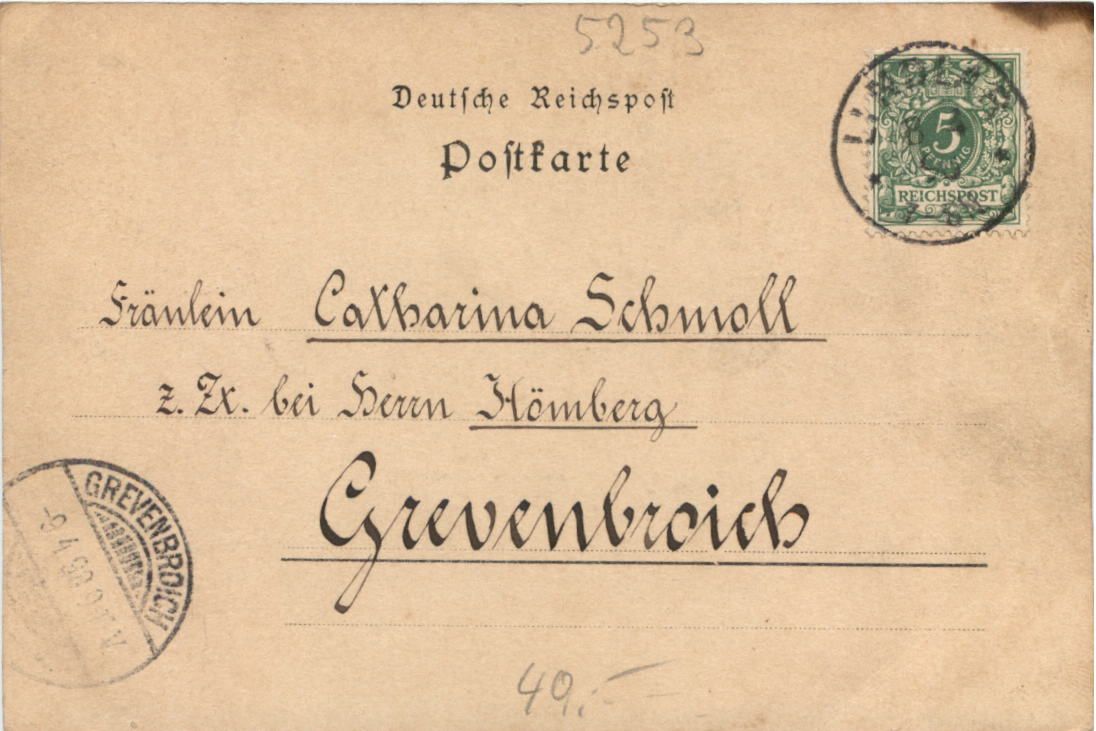 5253
Deutsche Reichspost
Postkarte
LINDLAR
5
PFENNIG
REICHSPOST
Fräulein Catharina Schmoll
z. Zt. bei Herrn Hömberg
Grevenbroich
GREVENBROICH
49.-